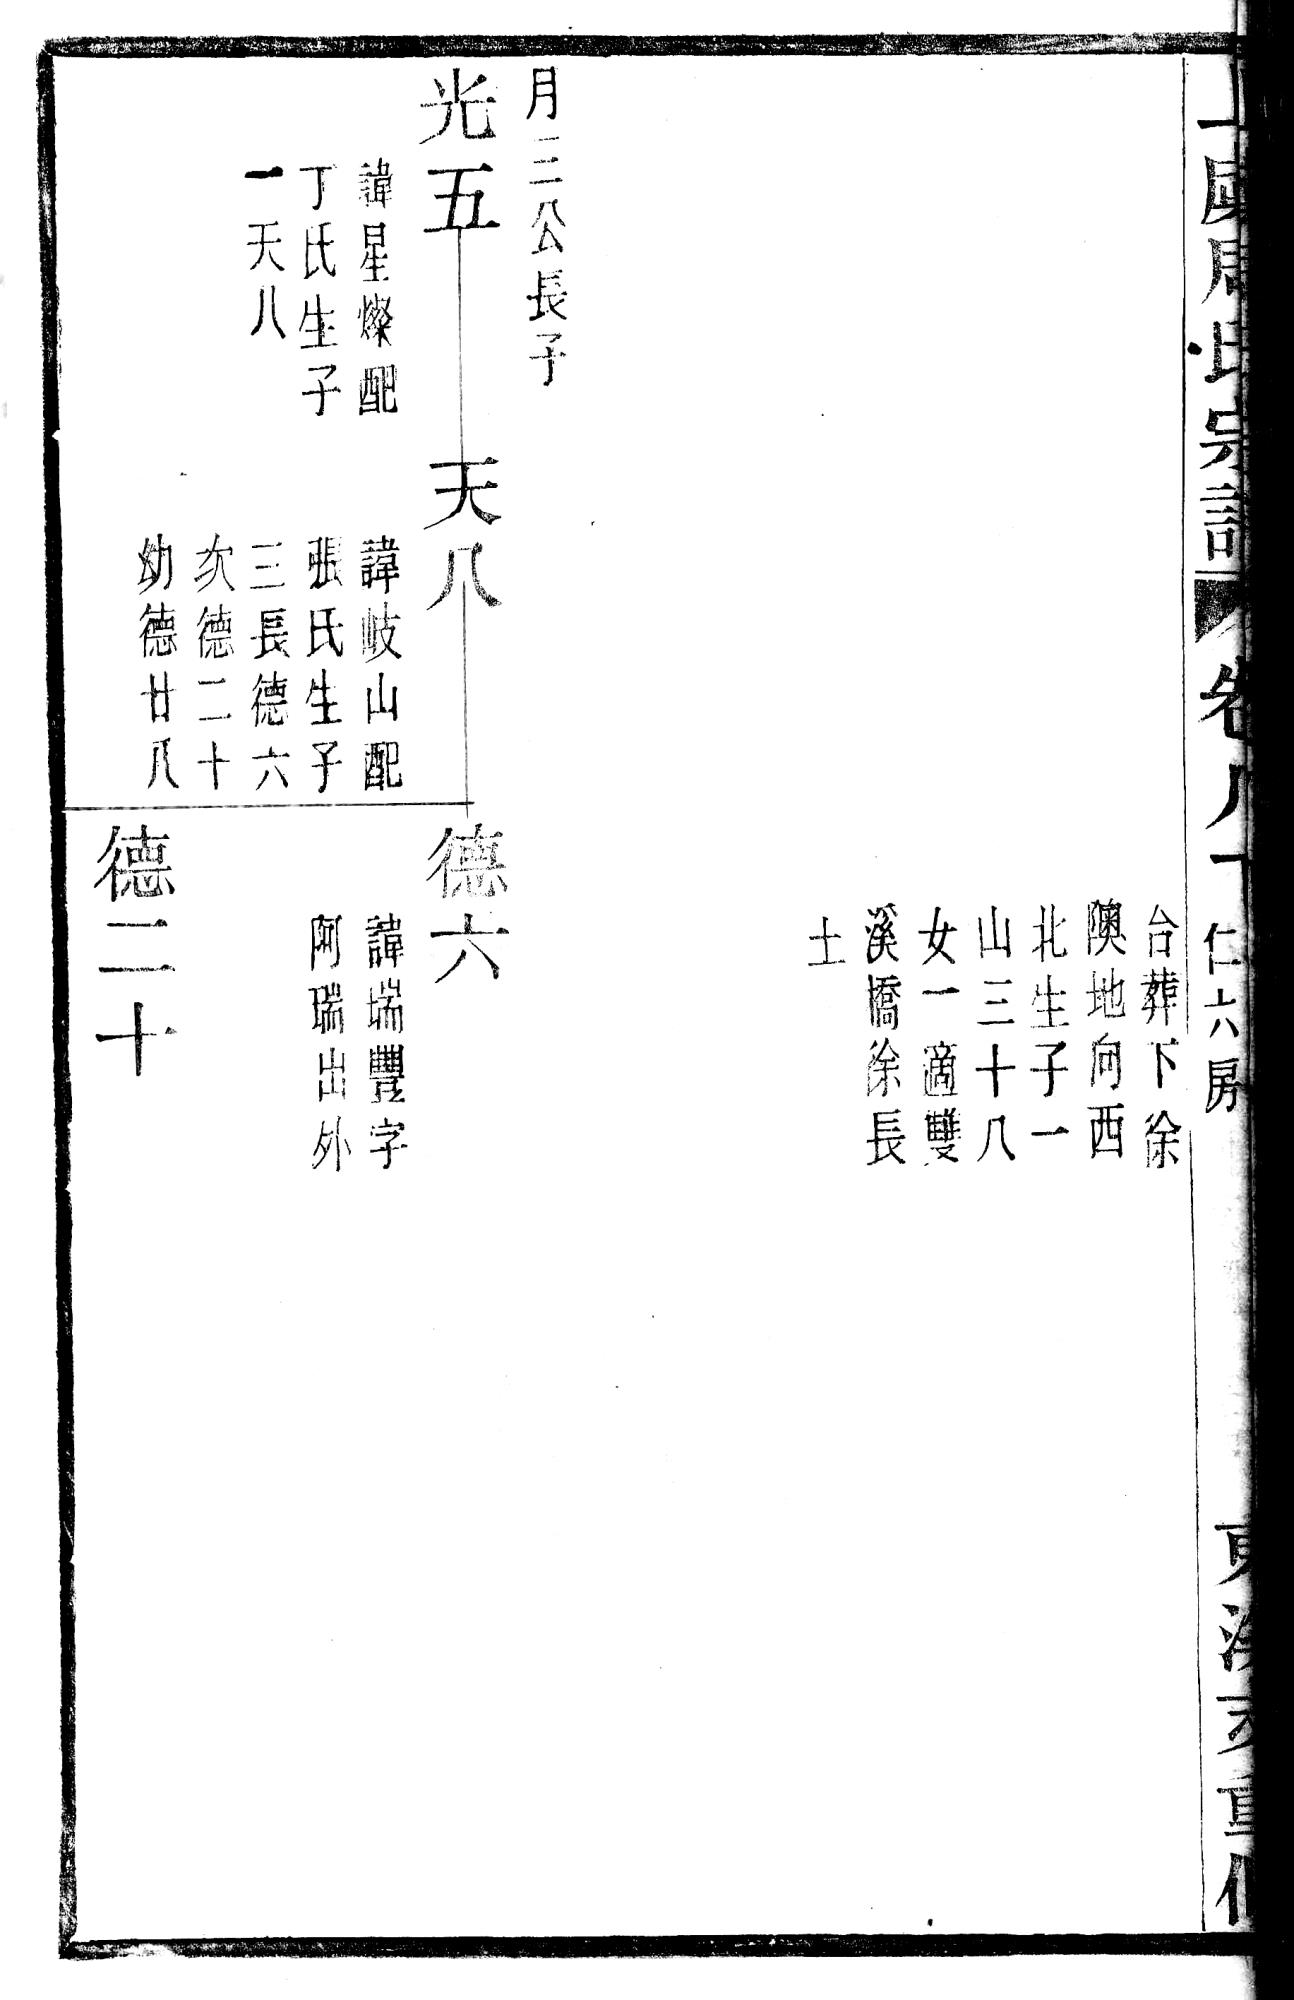 虞周氏宗譜
卷八十
仁六房
重修
台葬下徐
隩地向西
北生子一
山三十八
女一適雙
溪橋徐長
土
月三公長子
光五
諱星燦配
丁氏生子
一天八
天八
諱岐山配
張氏生子
三長德六
次德二十
幼德廿八
德六
諱瑞豐字
阿瑞出外
德二十